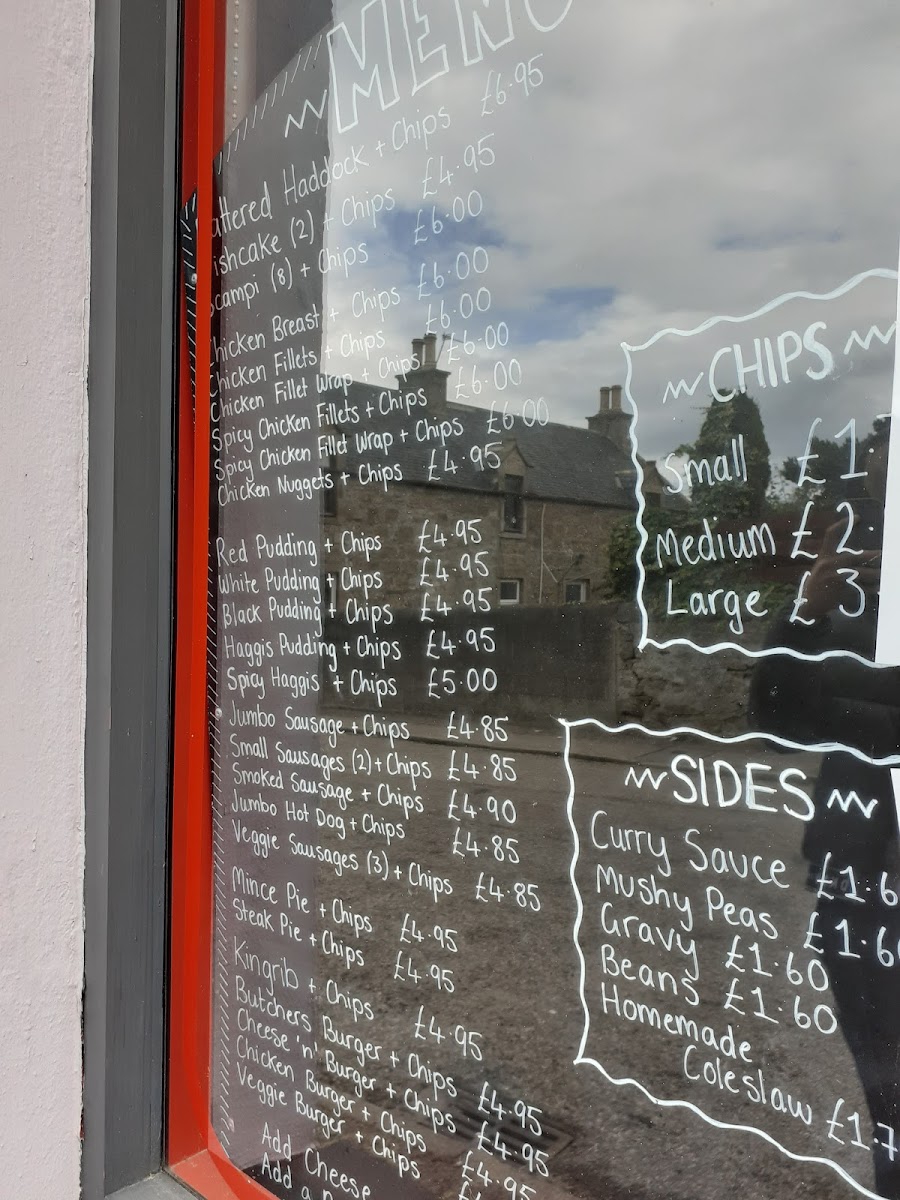 MENU
attered Haddock + Chips £6.95
ishcake (2) + Chips £4.95
Scampi (8) + Chips £6.00
Chicken Breast + Chips £6.00
Chicken Fillets + Chips £6.00
Chicken Fillet Wrap + Chips £6.00
Spicy Chicken Fillets + Chips £6.00
Spicy Chicken Fillet Wrap + Chips £6.00
Chicken Nuggets + Chips £4.95
Red Pudding + Chips £4.95
White Pudding + Chips £4.95
Black Pudding + Chips £4.95
Haggis Pudding + Chips £4.95
Spicy Haggis + Chips £5.00
Jumbo Sausage + Chips £4.85
Small Sausages (2) + Chips £4.85
Smoked Sausage + Chips £4.90
Jumbo Hot Dog + Chips £4.85
Veggie Sausages (3) + Chips £4.85
Mince Pie + Chips £4.95
Steak Pie + Chips £4.95
Kingrib + Chips £4.95
Butchers Burger + Chips £4.95
Cheese 'n' Burger + Chips £4.95
Chicken Burger + Chips £4.95
Veggie Burger + Chips
Add Cheese
Add a
CHIPS
Small £1.
Medium £2.
Large £3
SIDES
Curry Sauce £1.6
Mushy Peas £1.60
Gravy £1.60
Beans £1.60
Homemade
Coleslaw £1.7